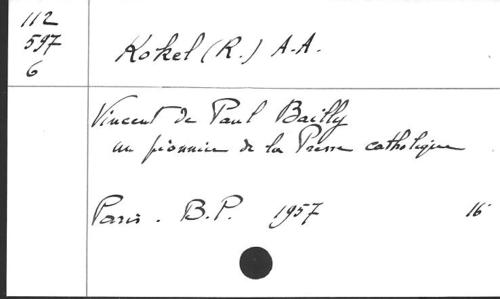 112
597
6
Kokel (R.) A.A.
Vincent de Paul Bailly
un pionnier de la Presse catholique
Paris. B.P. 1957 16